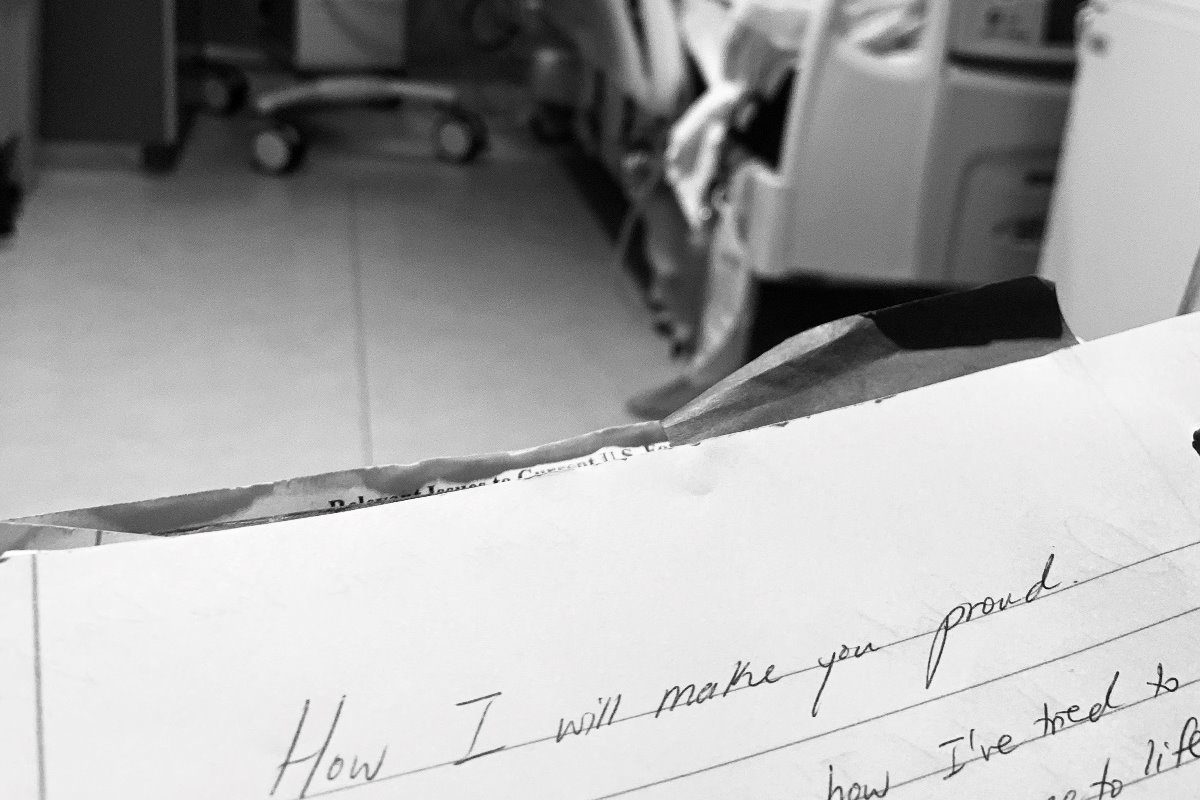 Relevant Issues to Current U.S.
How I will make you proud.
how I've tried to
to life